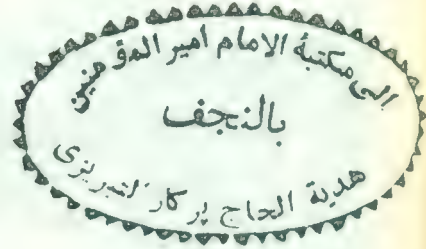 الى مكتبة الامام امير المؤمنين
بالنجف
هدية الحاج پركار التبريزى